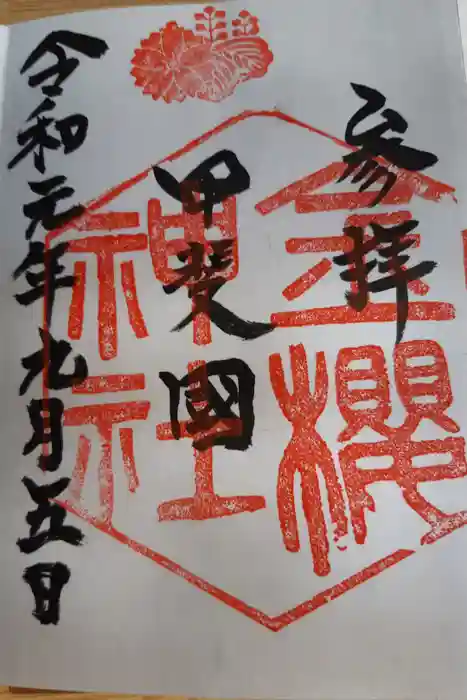 参拝
甲斐國
令和元年九月五日
金櫻
神社